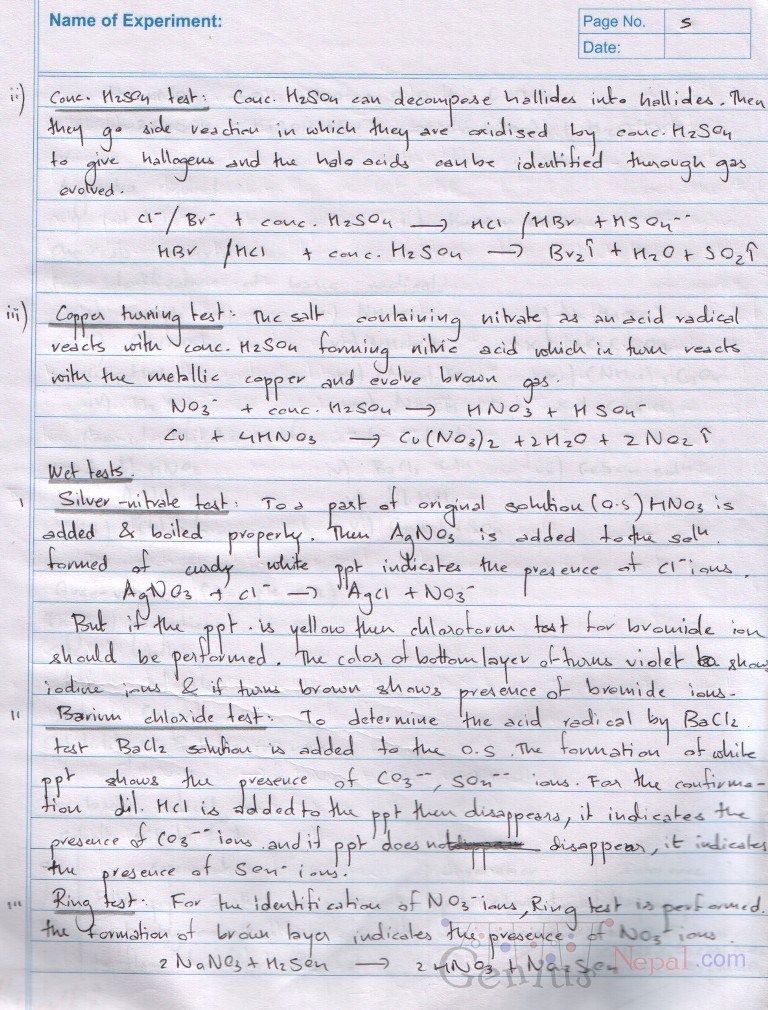 Name of Experiment:
Page No. 5
Date:
ii) Conc. H2SO4 test: Conc. H2SO4 can decompose hallides into hallides. Then
they go side reaction in which they are oxidised by conc. H2SO4
to give hallogens and the halo acids can be identified through gas
evolved.
Cl-/Br- + conc. H2SO4 → HCl /HBr + HSO4--
HBr /HCl + conc. H2SO4 → Br2↑ + H2O + SO2↑
iii) Copper turning test: The salt containing nitrate as an acid radical
reacts with conc. H2SO4 forming nitric acid which in turn reacts
with the metallic copper and evolve brown gas.
NO3- + conc. H2SO4 → HNO3 + HSO4-
Cu + 4HNO3 → Cu(NO3)2 + 2H2O + 2NO2↑
Wet tests
i Silver-nitrate test: To a part of original solution (O.S) HNO3 is
added & boiled property. Then AgNO3 is added to the soln.
formed of curdy white ppt indicates the presence of Cl- ions.
AgNO3 + Cl- → AgCl + NO3-
But if the ppt. is yellow then chloroform test for bromide ion
should be performed. The color of bottom layer of turns violet show
iodine ions & if turns brown shows presence of bromide ions.
ii Barium chloride test: To determine the acid radical by BaCl2
test BaCl2 solution is added to the O.S. The formation of white
ppt shows the presence of CO3--, SO4-- ions. For the confirma-
tion dil. HCl is added to the ppt then disappears, it indicates the
presence of CO3-- ions and if ppt does not disappear, it indicates
the presence of SO4-- ions.
iii Ring test: For the identification of NO3- ions, Ring test is performed.
the formation of brown layer indicates the presence of NO3- ions.
2NaNO3 + H2SO4 → 2HNO3 + Na2SO4
Genius Nepal.com